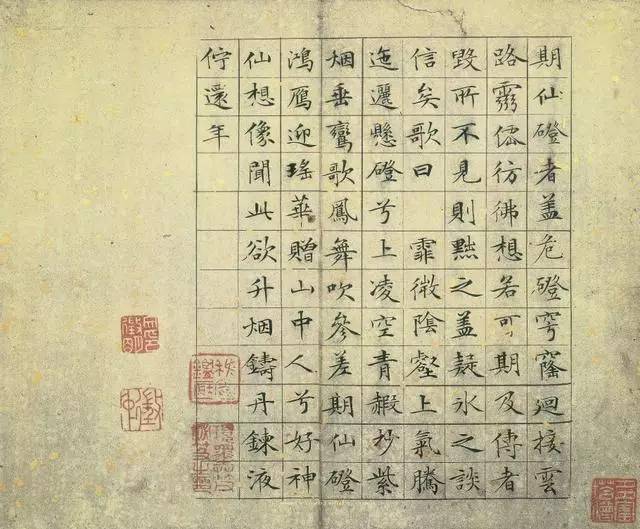 期仙磴者蓋危磴穹窿迴接雲
路靈僊彷彿想若可期及傳者
毀所不見則黜之蓋疑氷之談
信矣歌曰 霏微陰壑上氣騰
迤邐懸磴兮上凌空青霞杪紫
烟垂鸞歌鳳舞吹參差期仙磴
鴻鴈迎瑤華贈山中人兮好神
仙想像聞此欲升烟鑄丹鍊液
佇還年